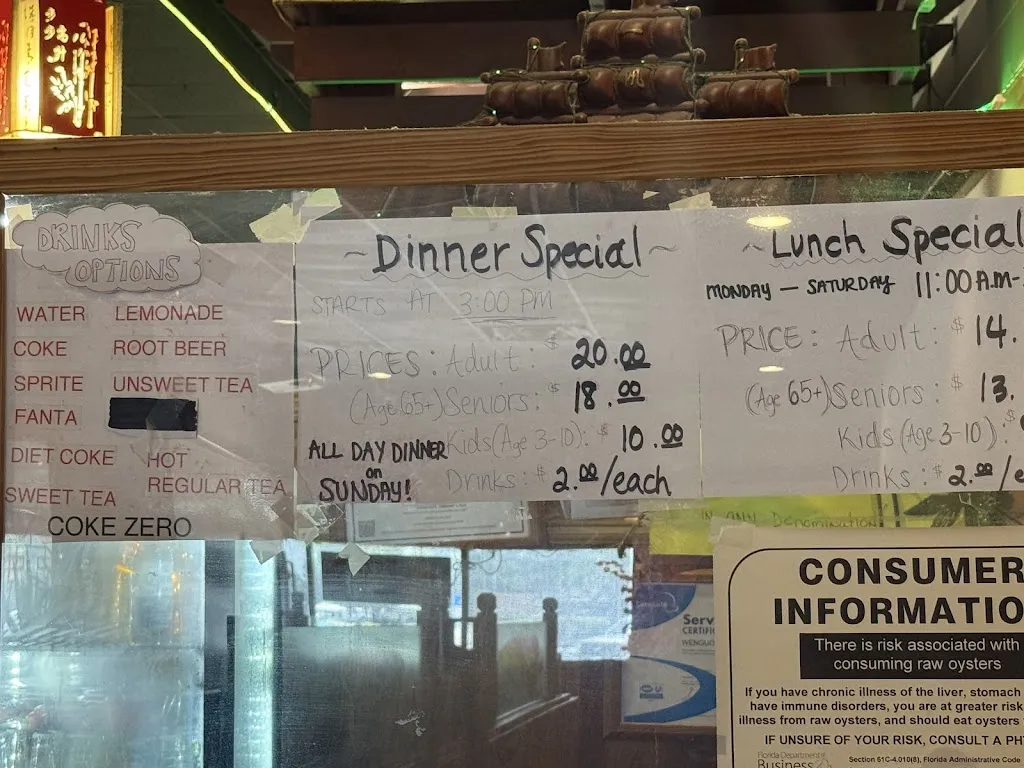 DRINKS
OPTIONS
WATER LEMONADE
COKE ROOT BEER
SPRITE UNSWEET TEA
FANTA
DIET COKE HOT
REGULAR TEA
SWEET TEA
COKE ZERO
~Dinner Special~
STARTS AT 3:00 PM
PRICES: Adult: $ 20.00
(Age 65+) Seniors: $ 18.00
Kids (Age 3-10): $ 10.00
Drinks: $ 2.00/each
ALL DAY DINNER
on
SUNDAY!
~Lunch Special
MONDAY — SATURDAY 11:00 A.M-
PRICE: Adult: $ 14.
(Age 65+) Seniors: $ 13.
Kids (Age 3-10): $
Drinks: $ 2.00/e
IN ANY Denomination
Serv
CERTIFIC
WENGUO
CONSUMER
INFORMATIO
There is risk associated with
consuming raw oysters
If you have chronic illness of the liver, stomach
have immune disorders, you are at greater risk
illness from raw oysters, and should eat oysters
IF UNSURE OF YOUR RISK, CONSULT A PH
Florida Department of
Business
Section 61C-4.010(8), Florida Administrative Code